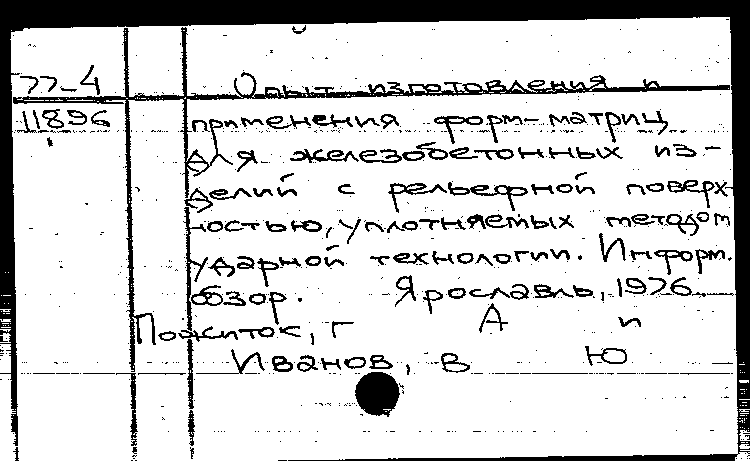 77-4 Опыт изготовления и
11896 применения форм-матриц
для железобетонных из-
делий с рельефной поверх-
ностью, уплотняемых методом
ударной технологии. Информ.
обзор. Ярославль, 1976.
Пожиток, г А и
Иванов, в Ю